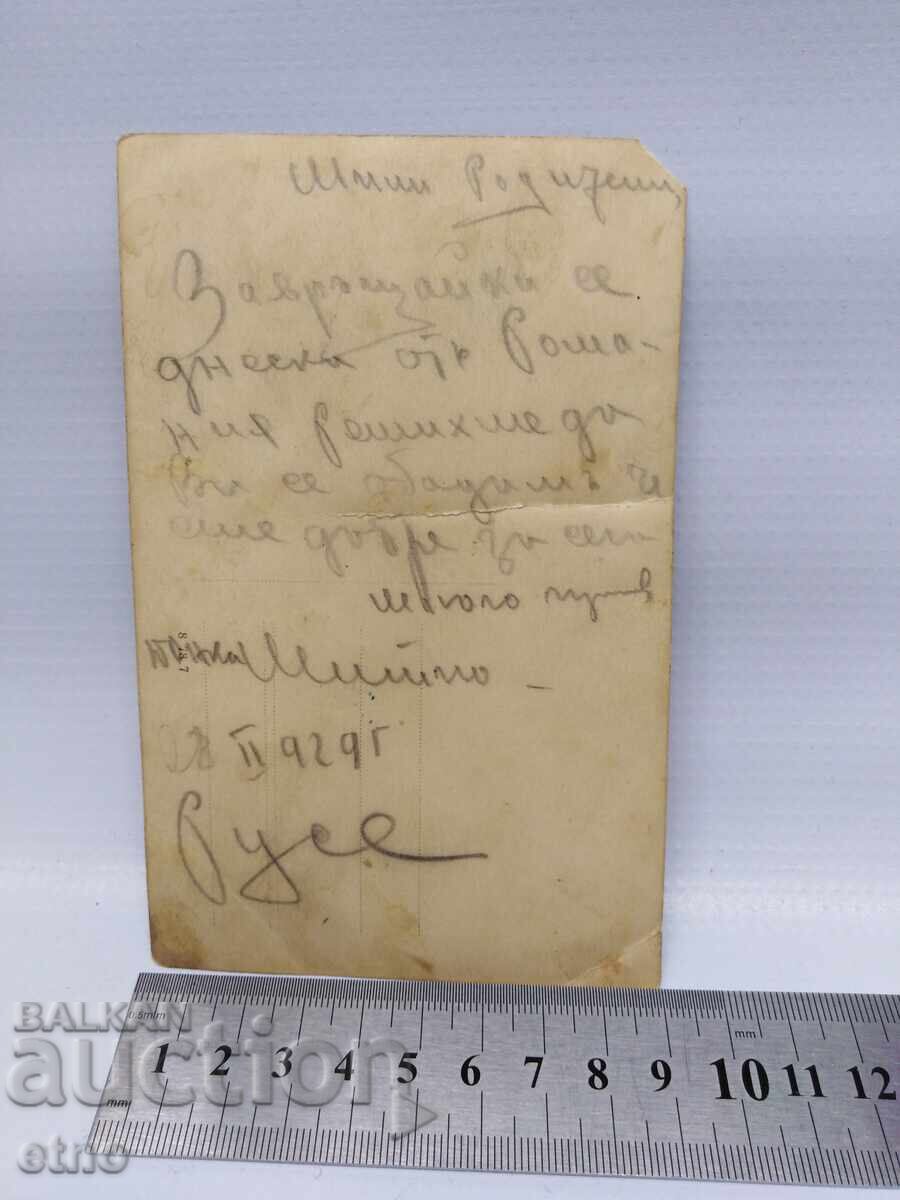 Мили Родители
Завръщайки се
днеска отъ Рома-
ния решихме да
Ви се обадимъ че
сме добре за сега
много здрав
Митко -
28 II 929 г
Русе
8 7
BALKAN
auction
etno
0.5m/m
mm
1 2 3 4 5 6 7 8 9 10 11 12
mm